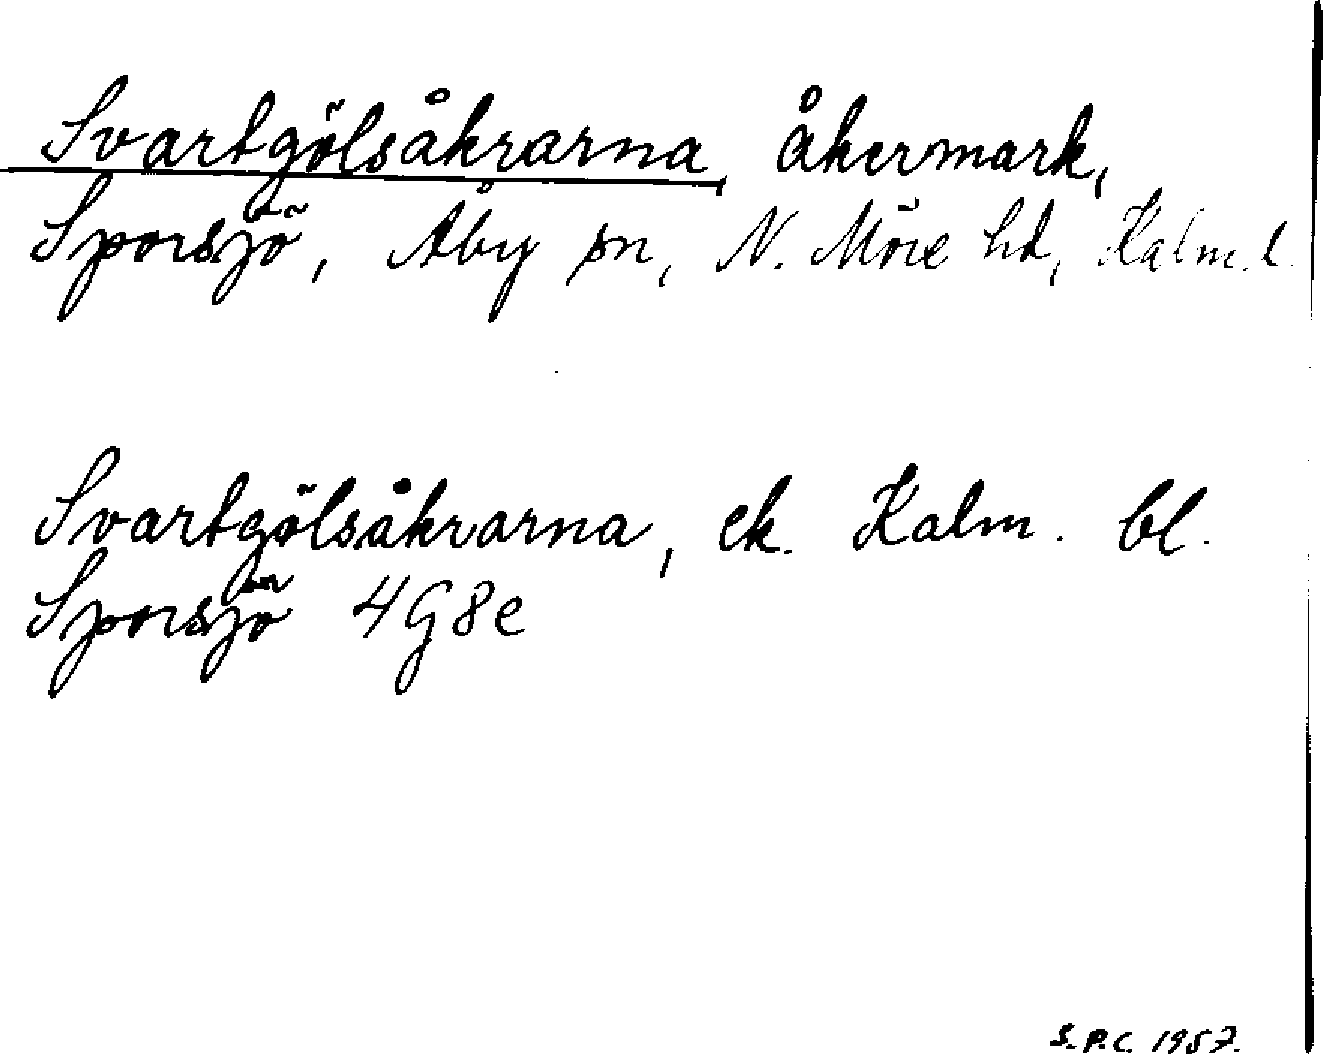 Svartgölsåkrarna, åkermark,
Sporsjö, Åby sn, N. Möre hd, Kalm. l.
Svartgölsåkrarna, ek. Kalm. bl.
Sporsjö 4G8e
S.P.C. 1957.